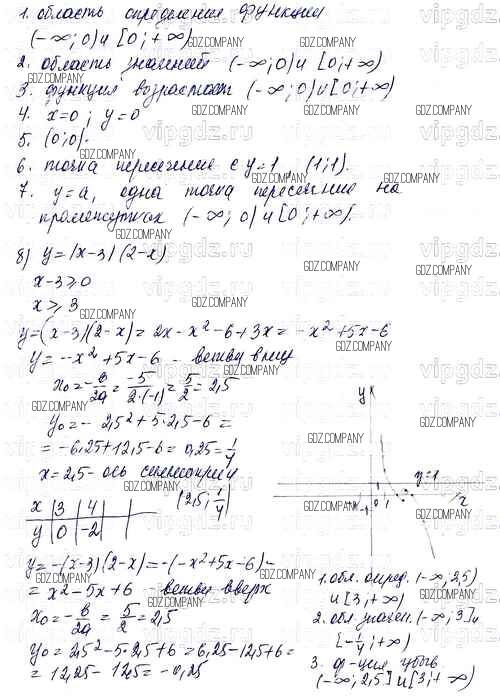 1. область определения функции
(-∞; 0) и [0; +∞)
2. область значений (-∞; 0) и [0; +∞)
3. функция возрастает (-∞; 0) и [0; +∞)
4. x=0; y=0
5. (0; 0).
6. точка пересечение с y=1, (1; 1).
7. y=a, одна точка пересечение на
промежутках (-∞; 0) и [0; +∞).
8) y=|x-3|(2-x)
x-3≥0
x≥3
y=(x-3)(2-x)=2x-x²-6+3x=-x²+5x-6
y=-x²+5x-6 - ветви вниз
x₀=-b/2a=-5/2·(-1)=5/2=2,5
y₀=-2,5²+5·2,5-6=
=-6,25+12,5-6=0,25=1/4
x=2,5-ось симметрии
(2,5; 1/4)
x | 3 | 4
y | 0 | -2
y=-(x-3)(2-x)=-(-x²+5x-6)=
=x²-5x+6 - ветви вверх
x₀=-b/2a=5/2=2,5
y₀=2,5²-5·2,5+6=6,25-12,5+6=
=12,25-12,5=-0,25
y
y=1
0 1
x
1. обл. опред. (-∞; 2,5)
и [3; +∞)
2. обл. значен. (-∞; 3] и
[-1/4; +∞)
3. ф-ция убыв
(-∞; 2,5] и [3; +∞)
GDZ.COMPANY
vipgdz.ru